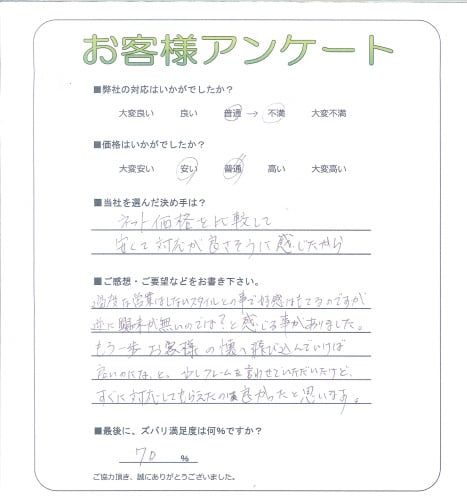 お客様アンケート
■弊社の対応はいかがでしたか？
大変良い 良い 普通 → 不満 大変不満
■価格はいかがでしたか？
大変安い 安い 普通 高い 大変高い
■当社を選んだ決め手は？
ネット価格を比較して
安くて対応が良さそうに感じたから
■ご感想・ご要望などをお書き下さい。
過度な営業はしないスタイルとの事で好感はもてるのですが
逆に興味が無いのでは？と感じる事がありました。
もう一歩 お客様の懐へ飛び込んでいけば
良いのにな、と。少しクレームを言わせていただいたけど、
すぐに対応してもらえたのは良かったと思います。
■最後に、ズバリ満足度は何％ですか？
70 ％
ご協力頂き、誠にありがとうございました。